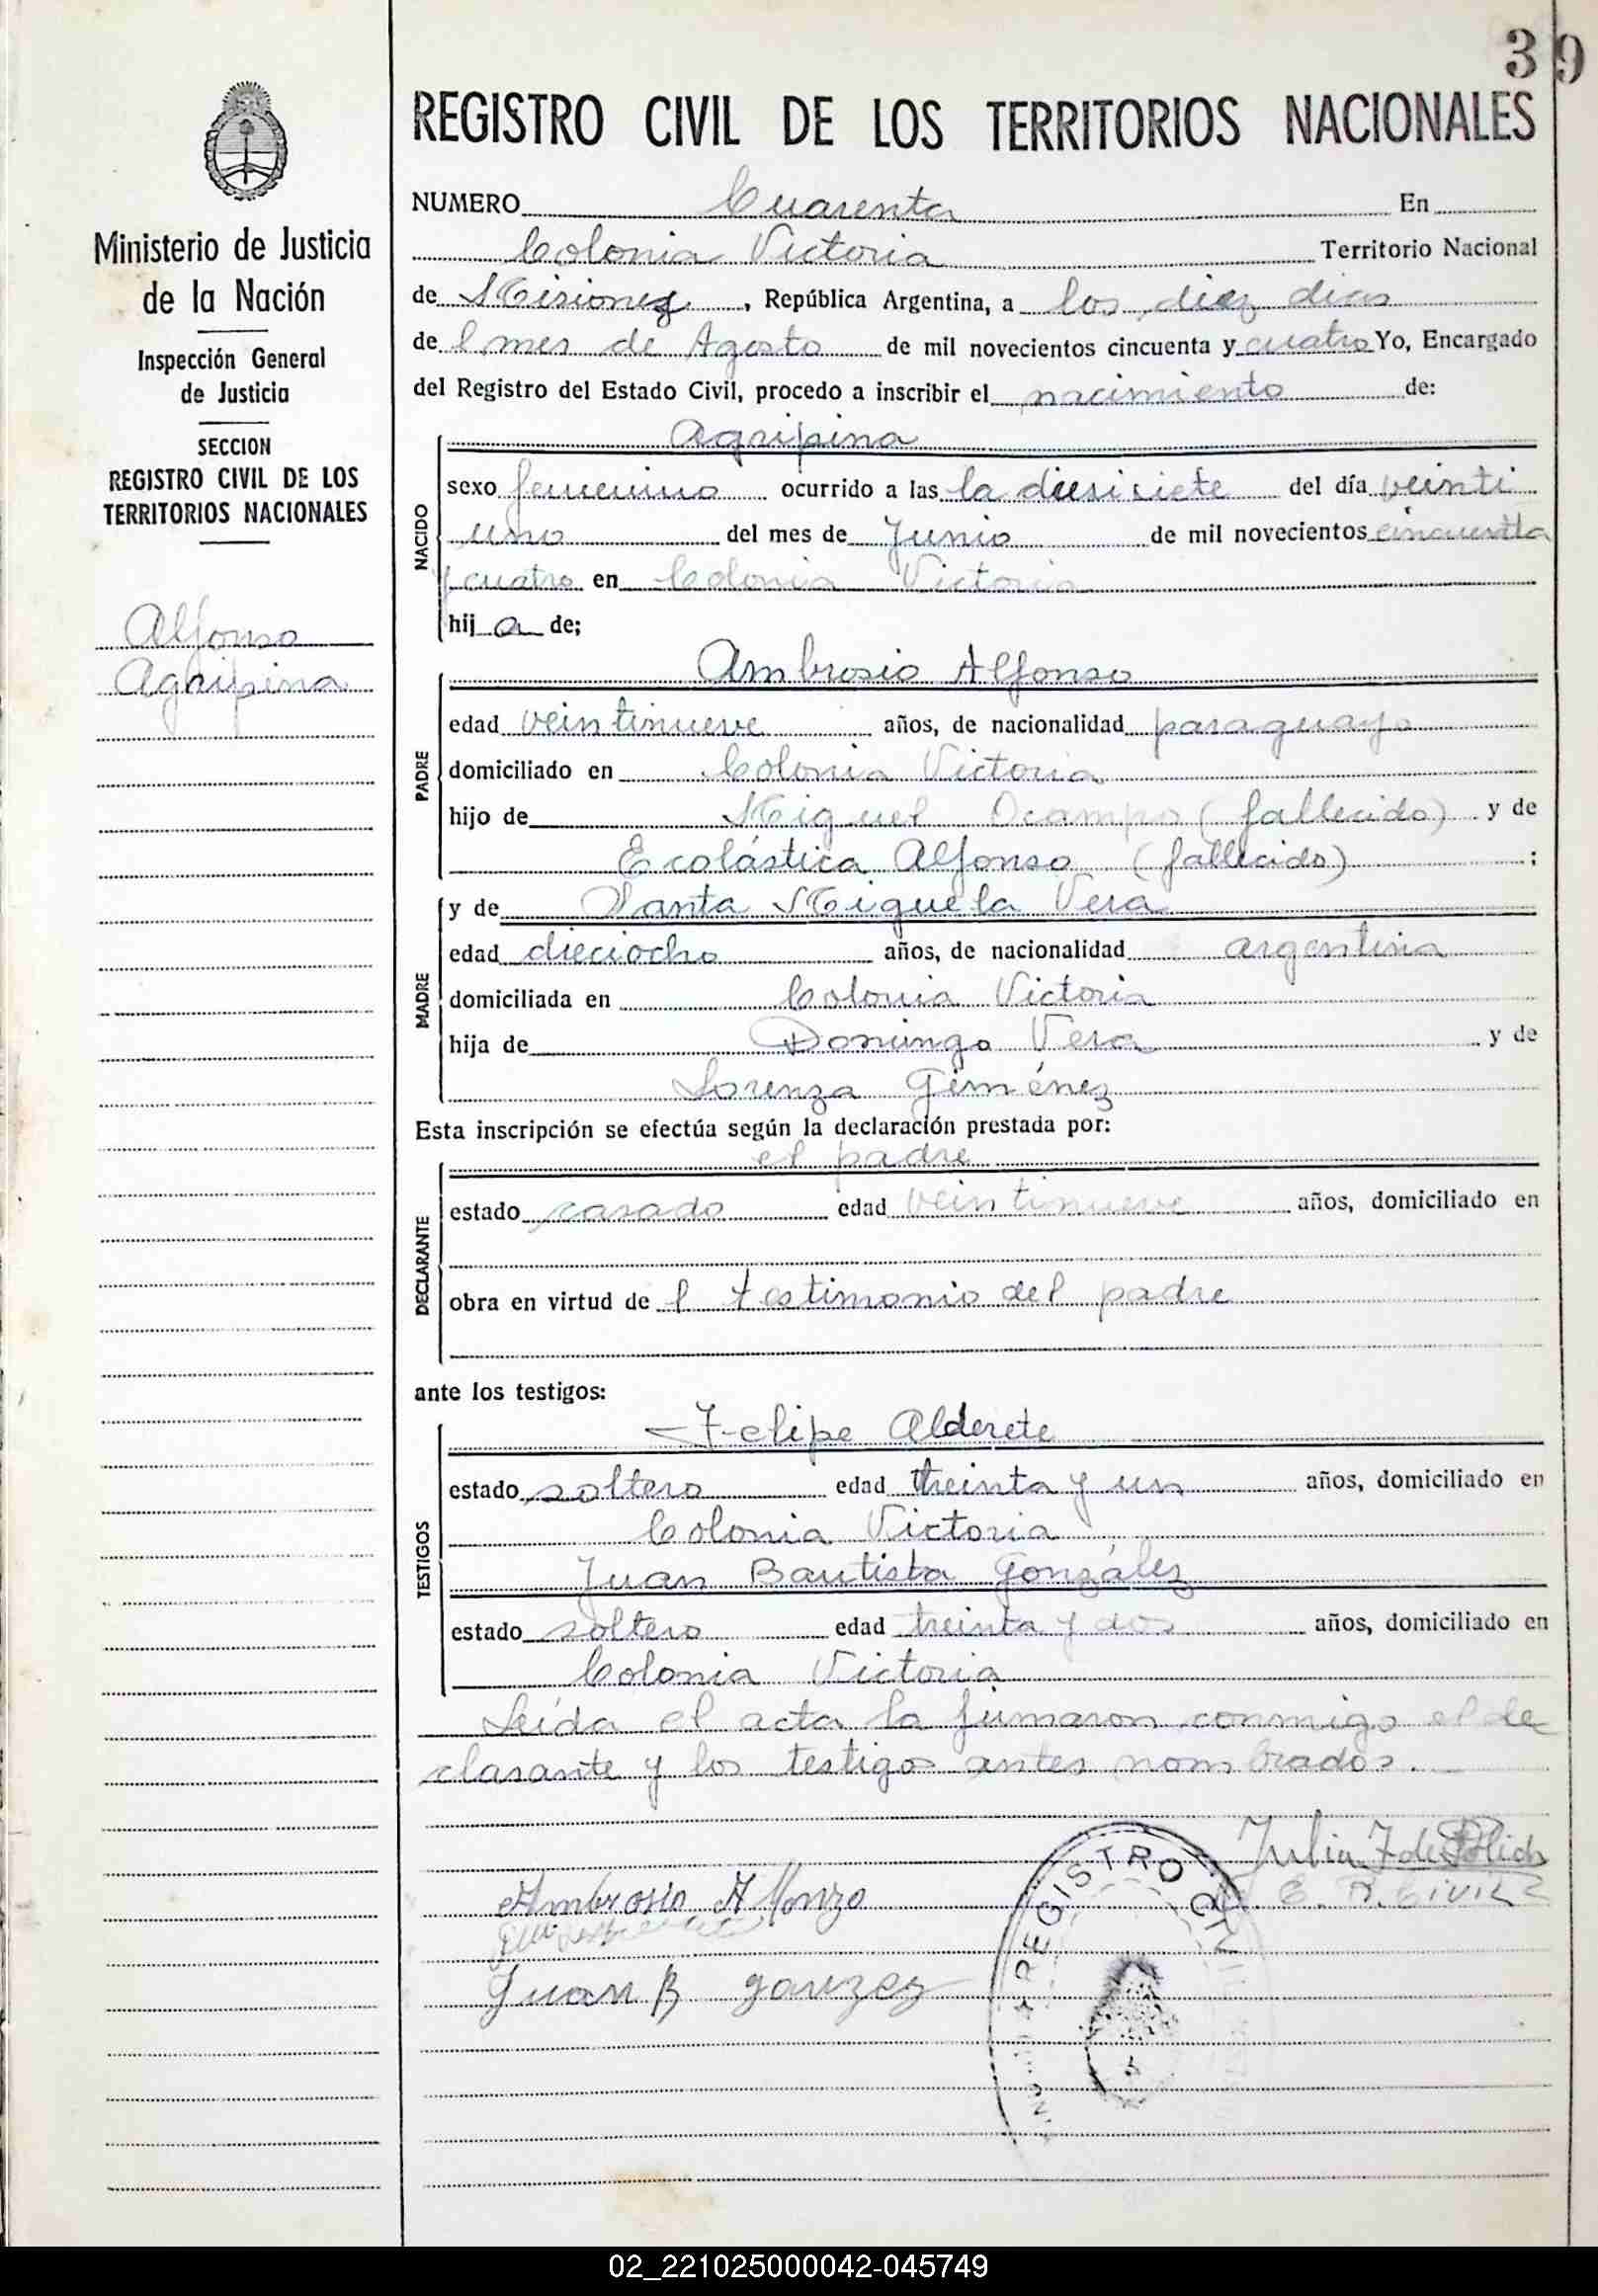 39
REGISTRO CIVIL DE LOS TERRITORIOS NACIONALES
Ministerio de Justicia
de la Nación
Inspección General
de Justicia
SECCION
REGISTRO CIVIL DE LOS
TERRITORIOS NACIONALES
Alfonso
Agripina
NUMERO Cuarenta En
Colonia Victoria Territorio Nacional
de Misiones, República Argentina, a los diez dias
de l mes de Agosto de mil novecientos cincuenta y cuatro Yo, Encargado
del Registro del Estado Civil, procedo a inscribir el nacimiento de:
NACIDO
Agripina
sexo femenino ocurrido a las la diesisiete del día veinti
uno del mes de Junio de mil novecientos cincuenta
y cuatro en Colonia Victoria
hij a de;
PADRE
Ambrosio Alfonso
edad veintinueve años, de nacionalidad paraguayo
domiciliado en Colonia Victoria
hijo de Miguel Ocampo (fallecido) y de
Escolástica Alfonso (fallecido) ;
MADRE
y de Santa Miguela Vera
edad dieciocho años, de nacionalidad argentina
domiciliada en Colonia Victoria
hija de Domingo Vera y de
Lorenza Giménez
Esta inscripción se efectúa según la declaración prestada por:
DECLARANTE
el padre
estado casado edad veintinueve años, domiciliado en
obra en virtud de l testimonio del padre
ante los testigos:
TESTIGOS
Felipe Alderete
estado soltero edad treinta y un años, domiciliado en
Colonia Victoria
Juan Bautista González
estado soltero edad treinta y dos años, domiciliado en
Colonia Victoria
Leída el acta la firmaron conmigo el de
clarante y los testigos antes nombrados.
Julia F de
E. R. Civil
Ambrosio Alfonzo
Juan B gonzez
REGISTRO CIVIL
02_221025000042-045749